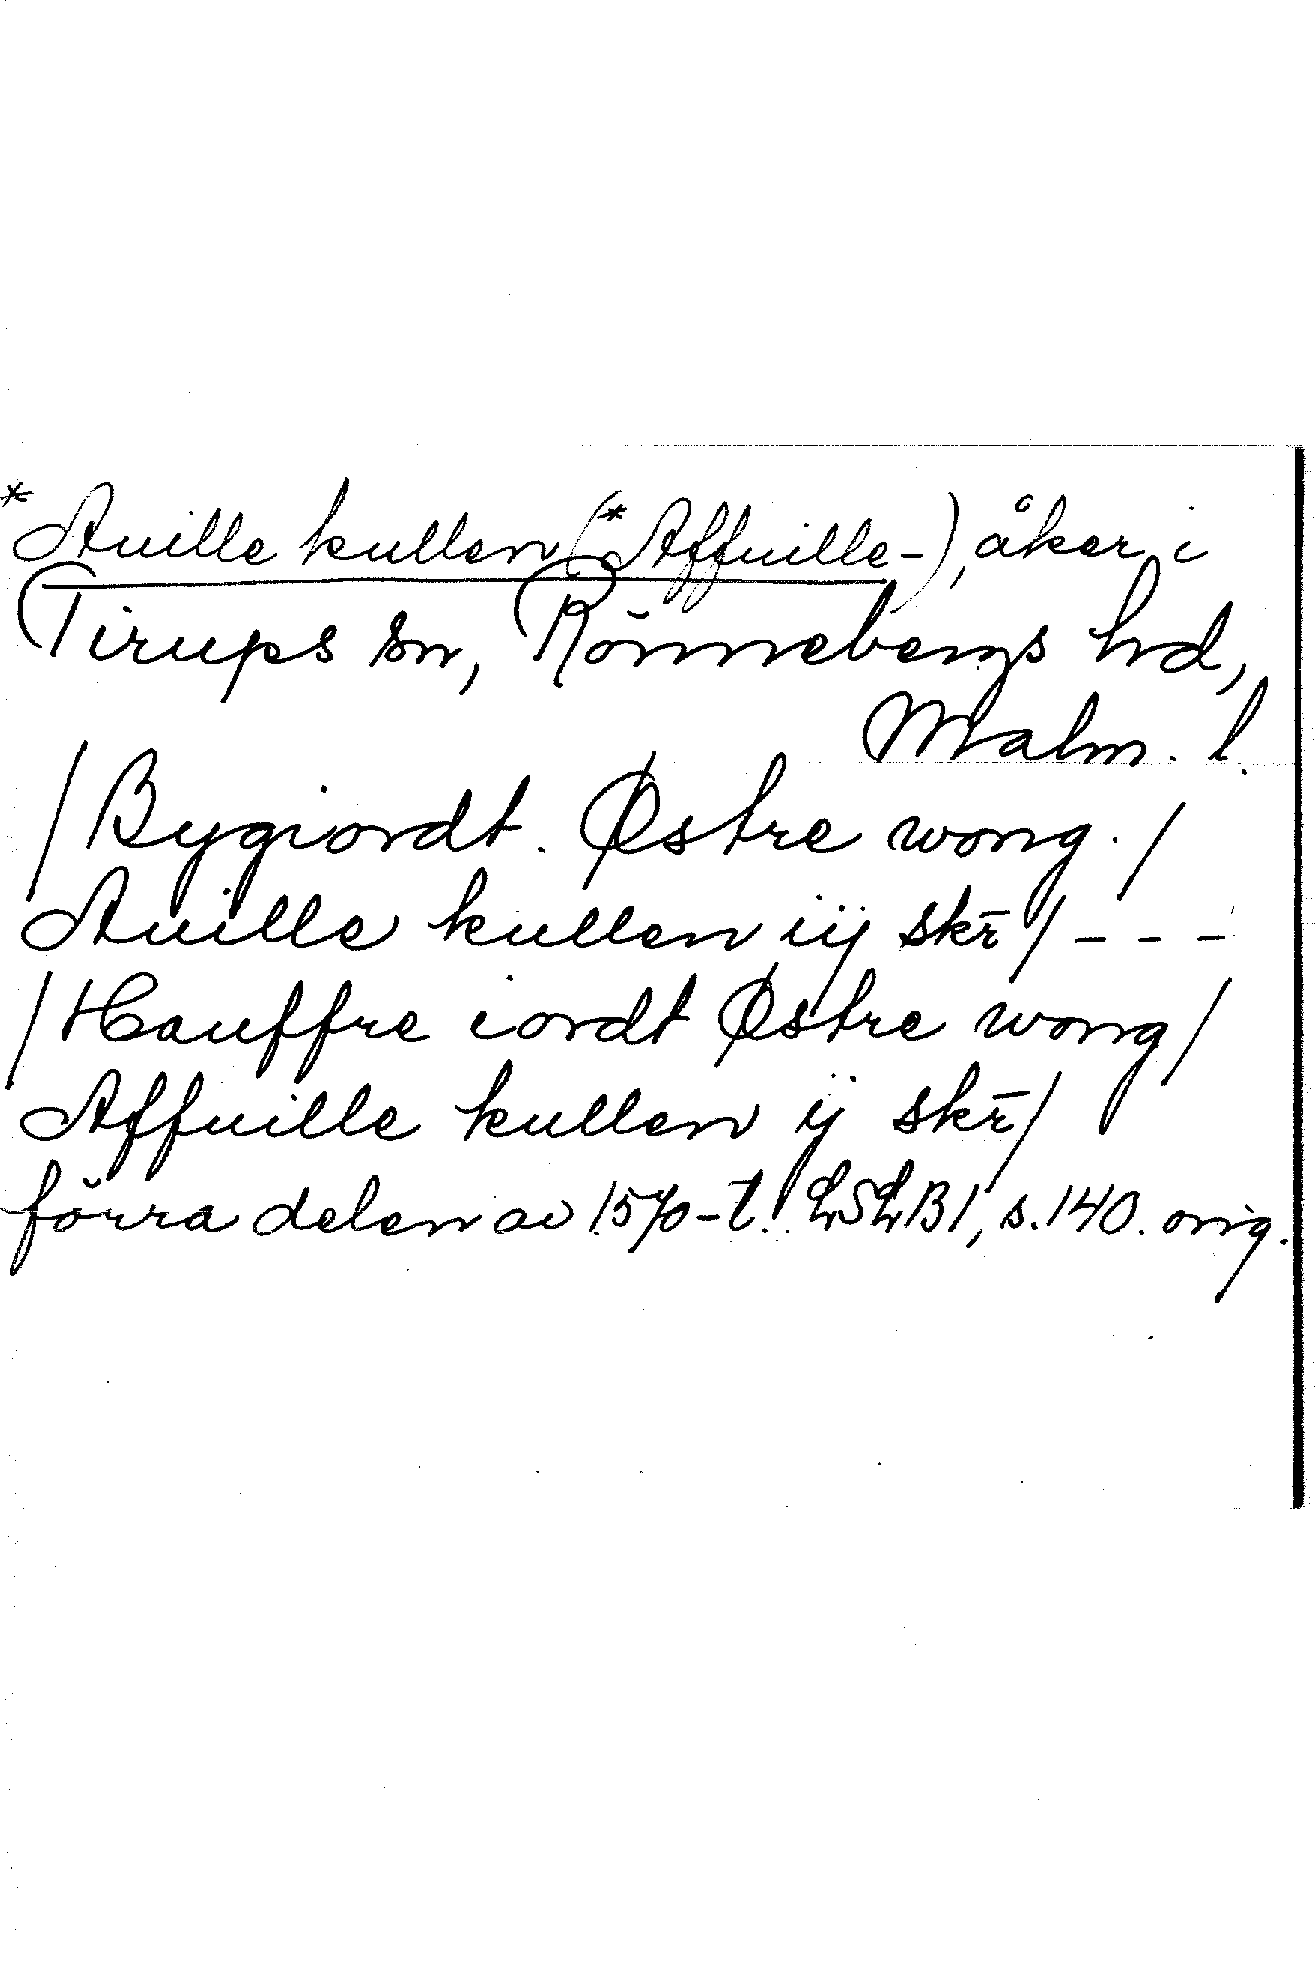 *Auille kullen (*Affuille-), åker i
Tirups sn, Rönnebergs hd,
Malm. l.
/Bygiordt. Østre wong./
Auille kullen iij skr̄/ - - -
/Hauffre iordt Østre wong/
Affuille kullen ij skr̄/
förra delen av 1570-t. LSLB1, s. 140. orig.